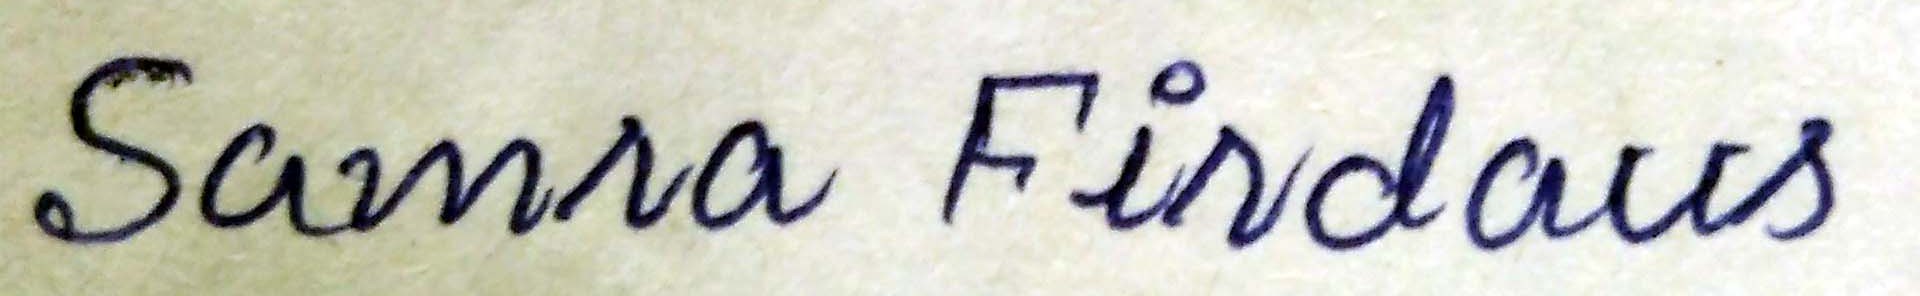 Samra Firdaus